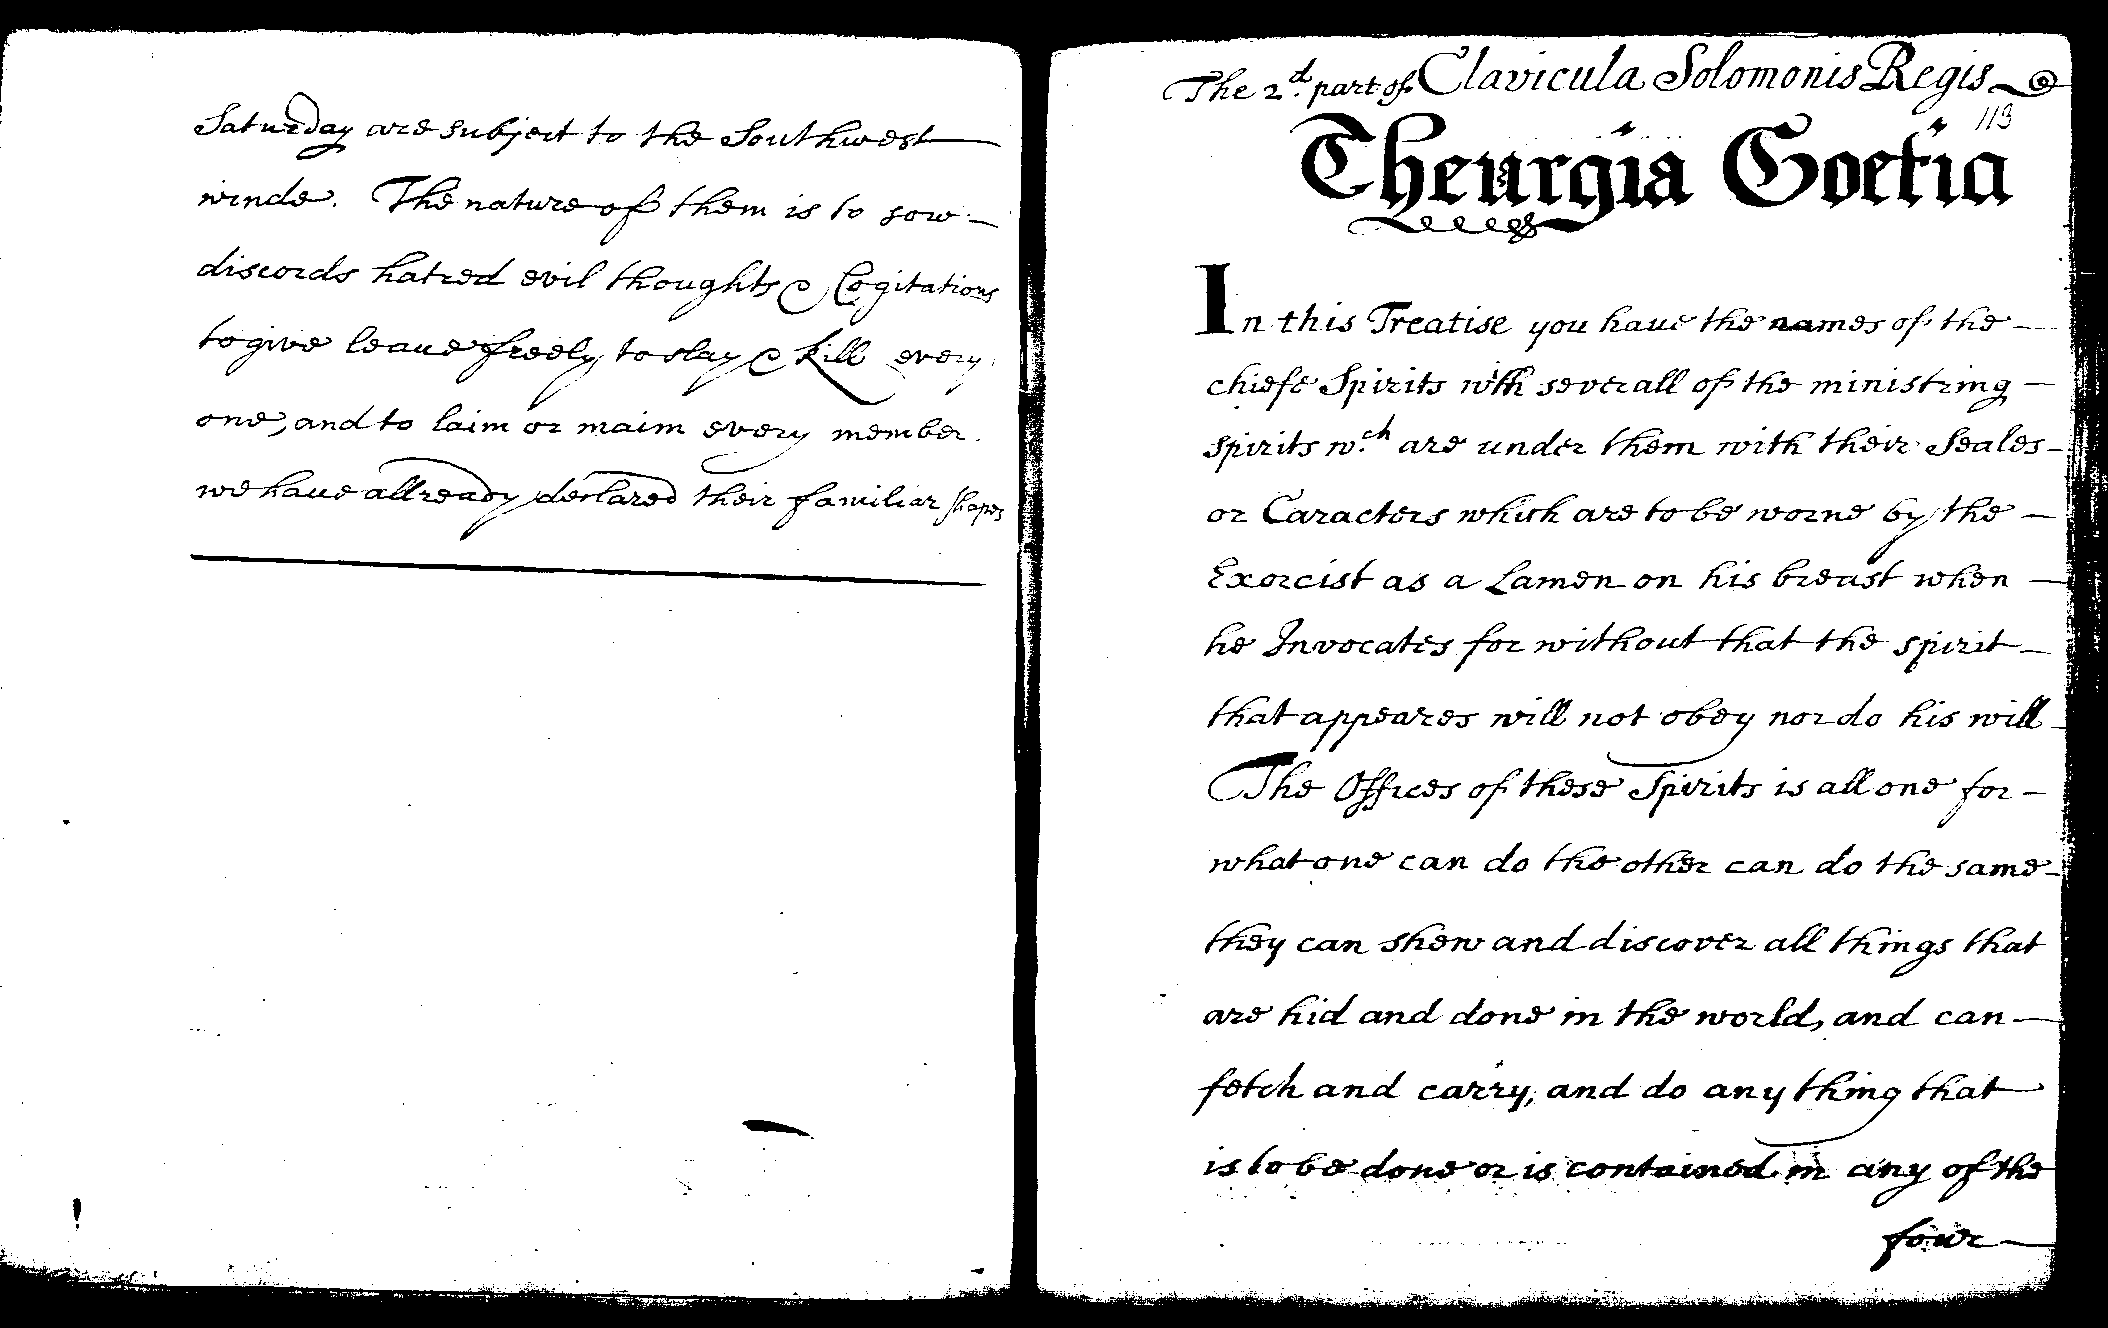 Saturday are subject to the Southwest
winde. The nature of them is to sow
discords hatred evil thoughts & Cogitations
to give leave freely to slay & kill every
one, and to laim or maim every member.
we have allready declared their familiar shapes
The 2d. part of Clavicula Solomonis Regis
113
Theurgia Goetia
In this Treatise you have the names of the
chiefe Spirits with severall of the ministring
spirits wch. are under them with their Seales
or Caracters which are to be worne by the
Exorcist as a Lamen on his breast when
he Invocates for without that the spirit
that appeares will not obey nor do his will
The Offices of these Spirits is all one for
what one can do the other can do the same
they can shew and discover all things that
are hid and done in the world, and can
fetch and carry, and do any thing that
is to be done or is contained in any of the
four